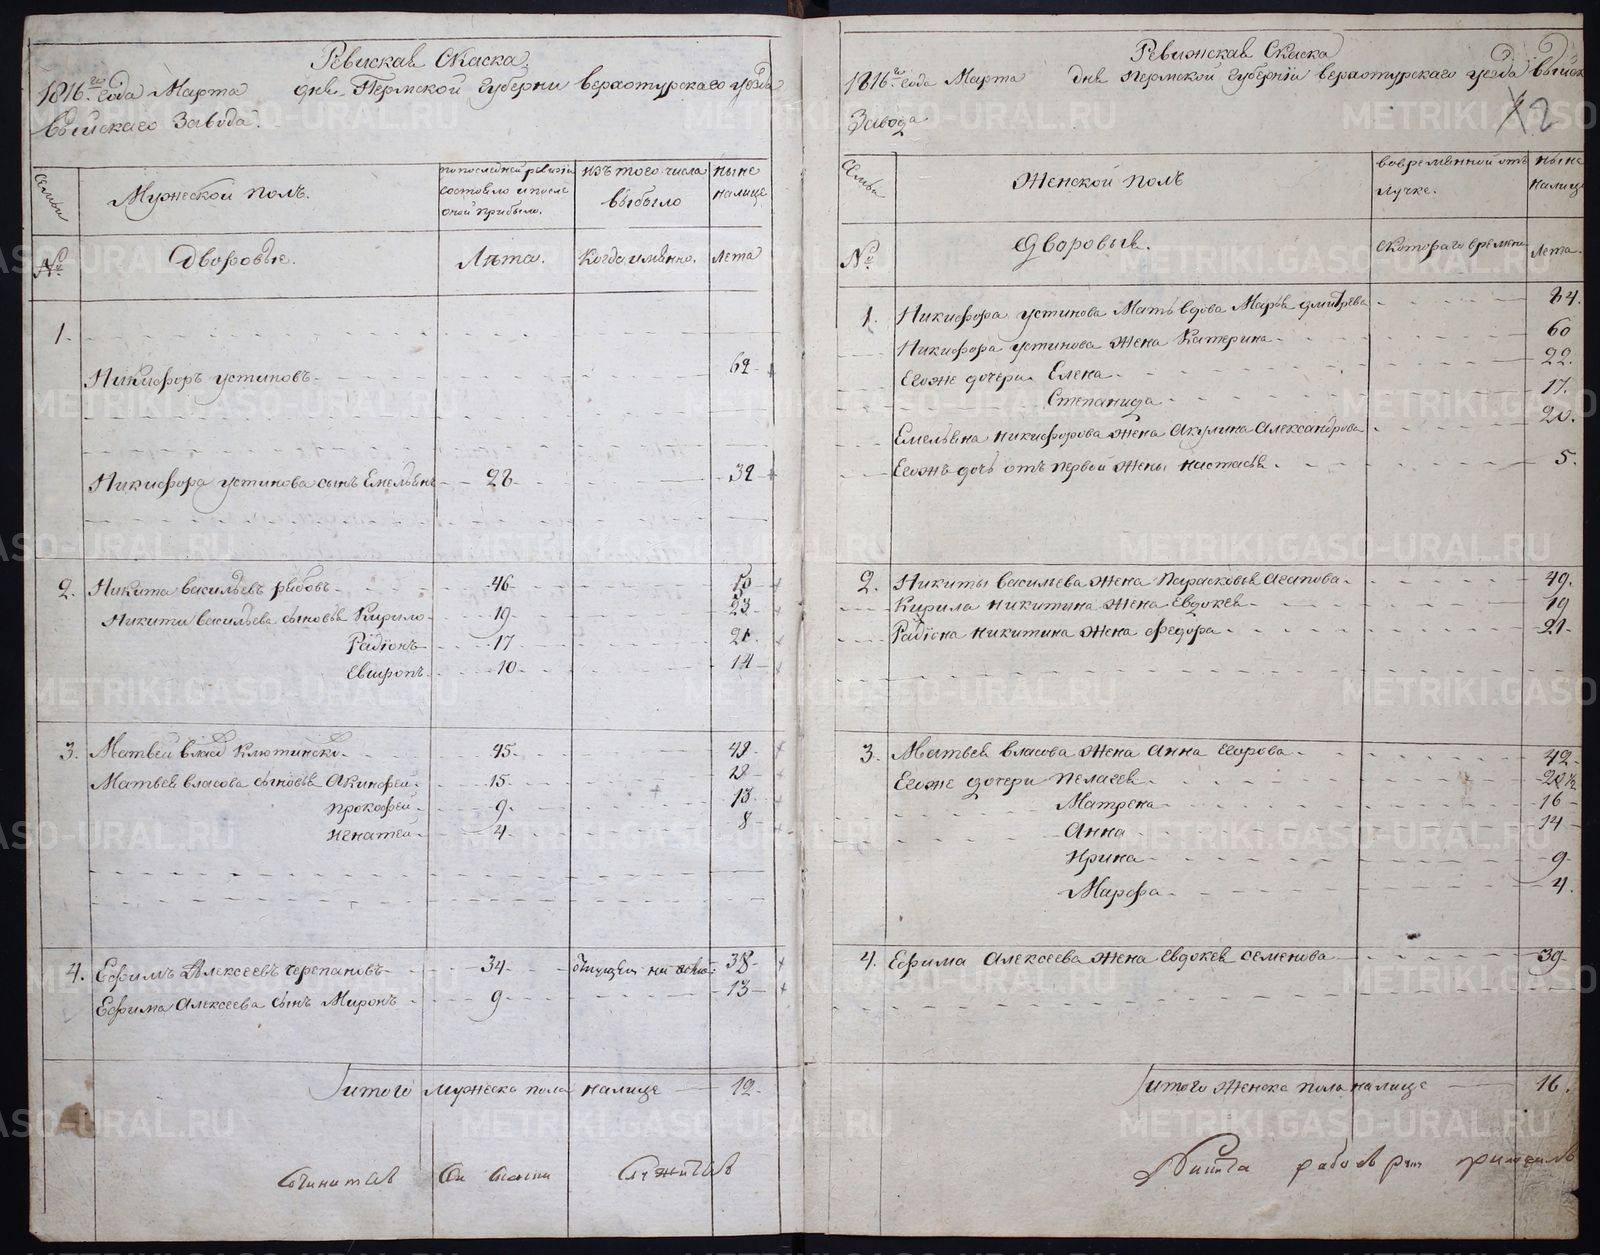 Ревиская Скаска
1816го Года Марта дня Пермской Губерни Верхотурскаго уезда
Выйскаго Завода.
Семьи
Мужеской полъ.
по последней ревизіи состояло и после оной прибыло.
изъ того числа выбыло
ныне налице
№
Дворовые.
Лета.
Когда имянно.
Лета
1.
Никифоръ Устиновъ 62
Никифора Устинова сынъ Емельянъ 28 32
2. Никита Васильевъ Рябовъ 46 50
Никиты Васильева сыновья Кирило 19 23
Радіонъ 17 21
10 14
3. Матвей Власовъ 45 49
Матвея Власова сыновья Акинфей 15 19
Прокофей 9 13
Игнатей 4 8
4. Ефимъ Алексеевъ Черепановъ 34 38
Ефима Алексеева сынъ Миронъ 9 13
Итого мужеска пола налице 12
Ревижская Скаска
1816го Года Марта дня Пермской Губерніи Верхотурскаго уезда Выйск
Завода
2
Семьи
Женской полъ
во временной отлучке.
ныне налице
№
Дворовыя.
с котораго времени
Лета.
1. Никифора Устинова мать вдова Марья Дмитрева 84.
Никифора Устинова жена Катерина 60
Егоже дочери Елена 22.
Степанида 17.
Емельяна Никифорова жена Акулина Александрова 20.
Егожъ дочь отъ первой жены Настасья 5.
2. Никиты Васильева жена Парасковья Агапова 49.
Кирила Никитина жена Евдокея 19
Радіона Никитина жена Федора 21
3. Матвея Власова жена Анна Егорова 42
Егоже дочери Пелагея
Матрена 16
Анна 14
Ирина 9
Марфа 4.
4. Ефима Алексеева жена Евдокея Семенова 39
Итого женска пола налице 16.
METRIKI.GASO-URAL.RU